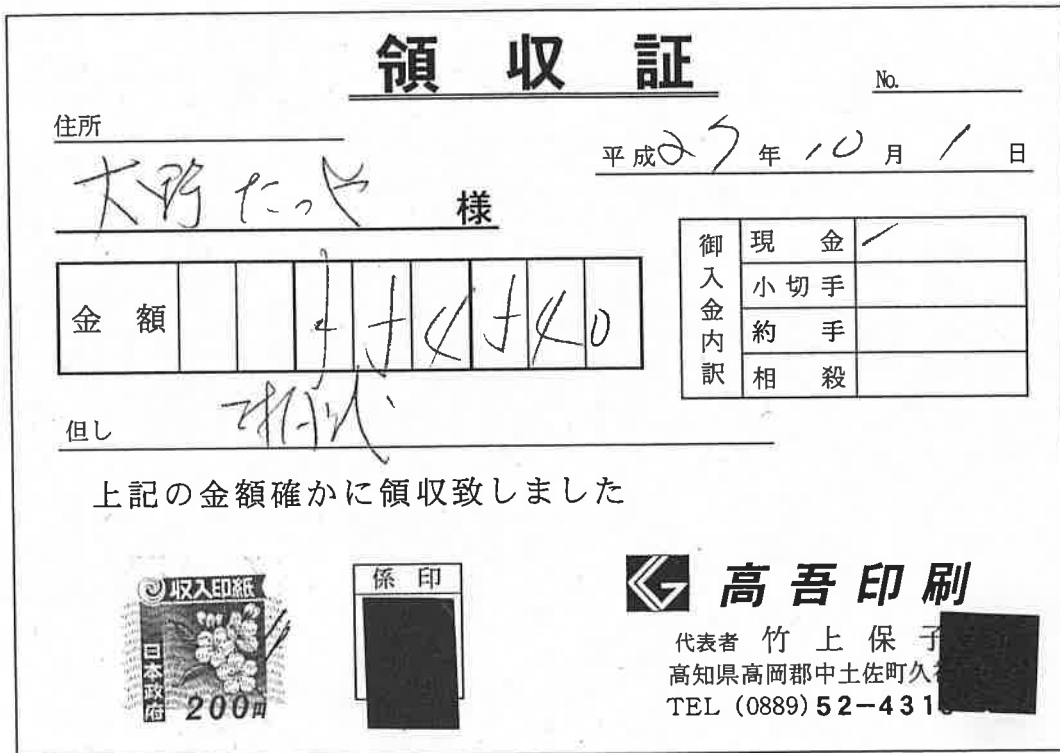 領収証
No.
住所
平成27年10月1日
大野たつや 様
金額 4 40
御入金内訳
現金
小切手
約手
相殺
但し
上記の金額確かに領収致しました
収入印紙
日本政府
200円
係印
高吾印刷
代表者 竹上保子
高知県高岡郡中土佐町久
TEL (0889) 52-431